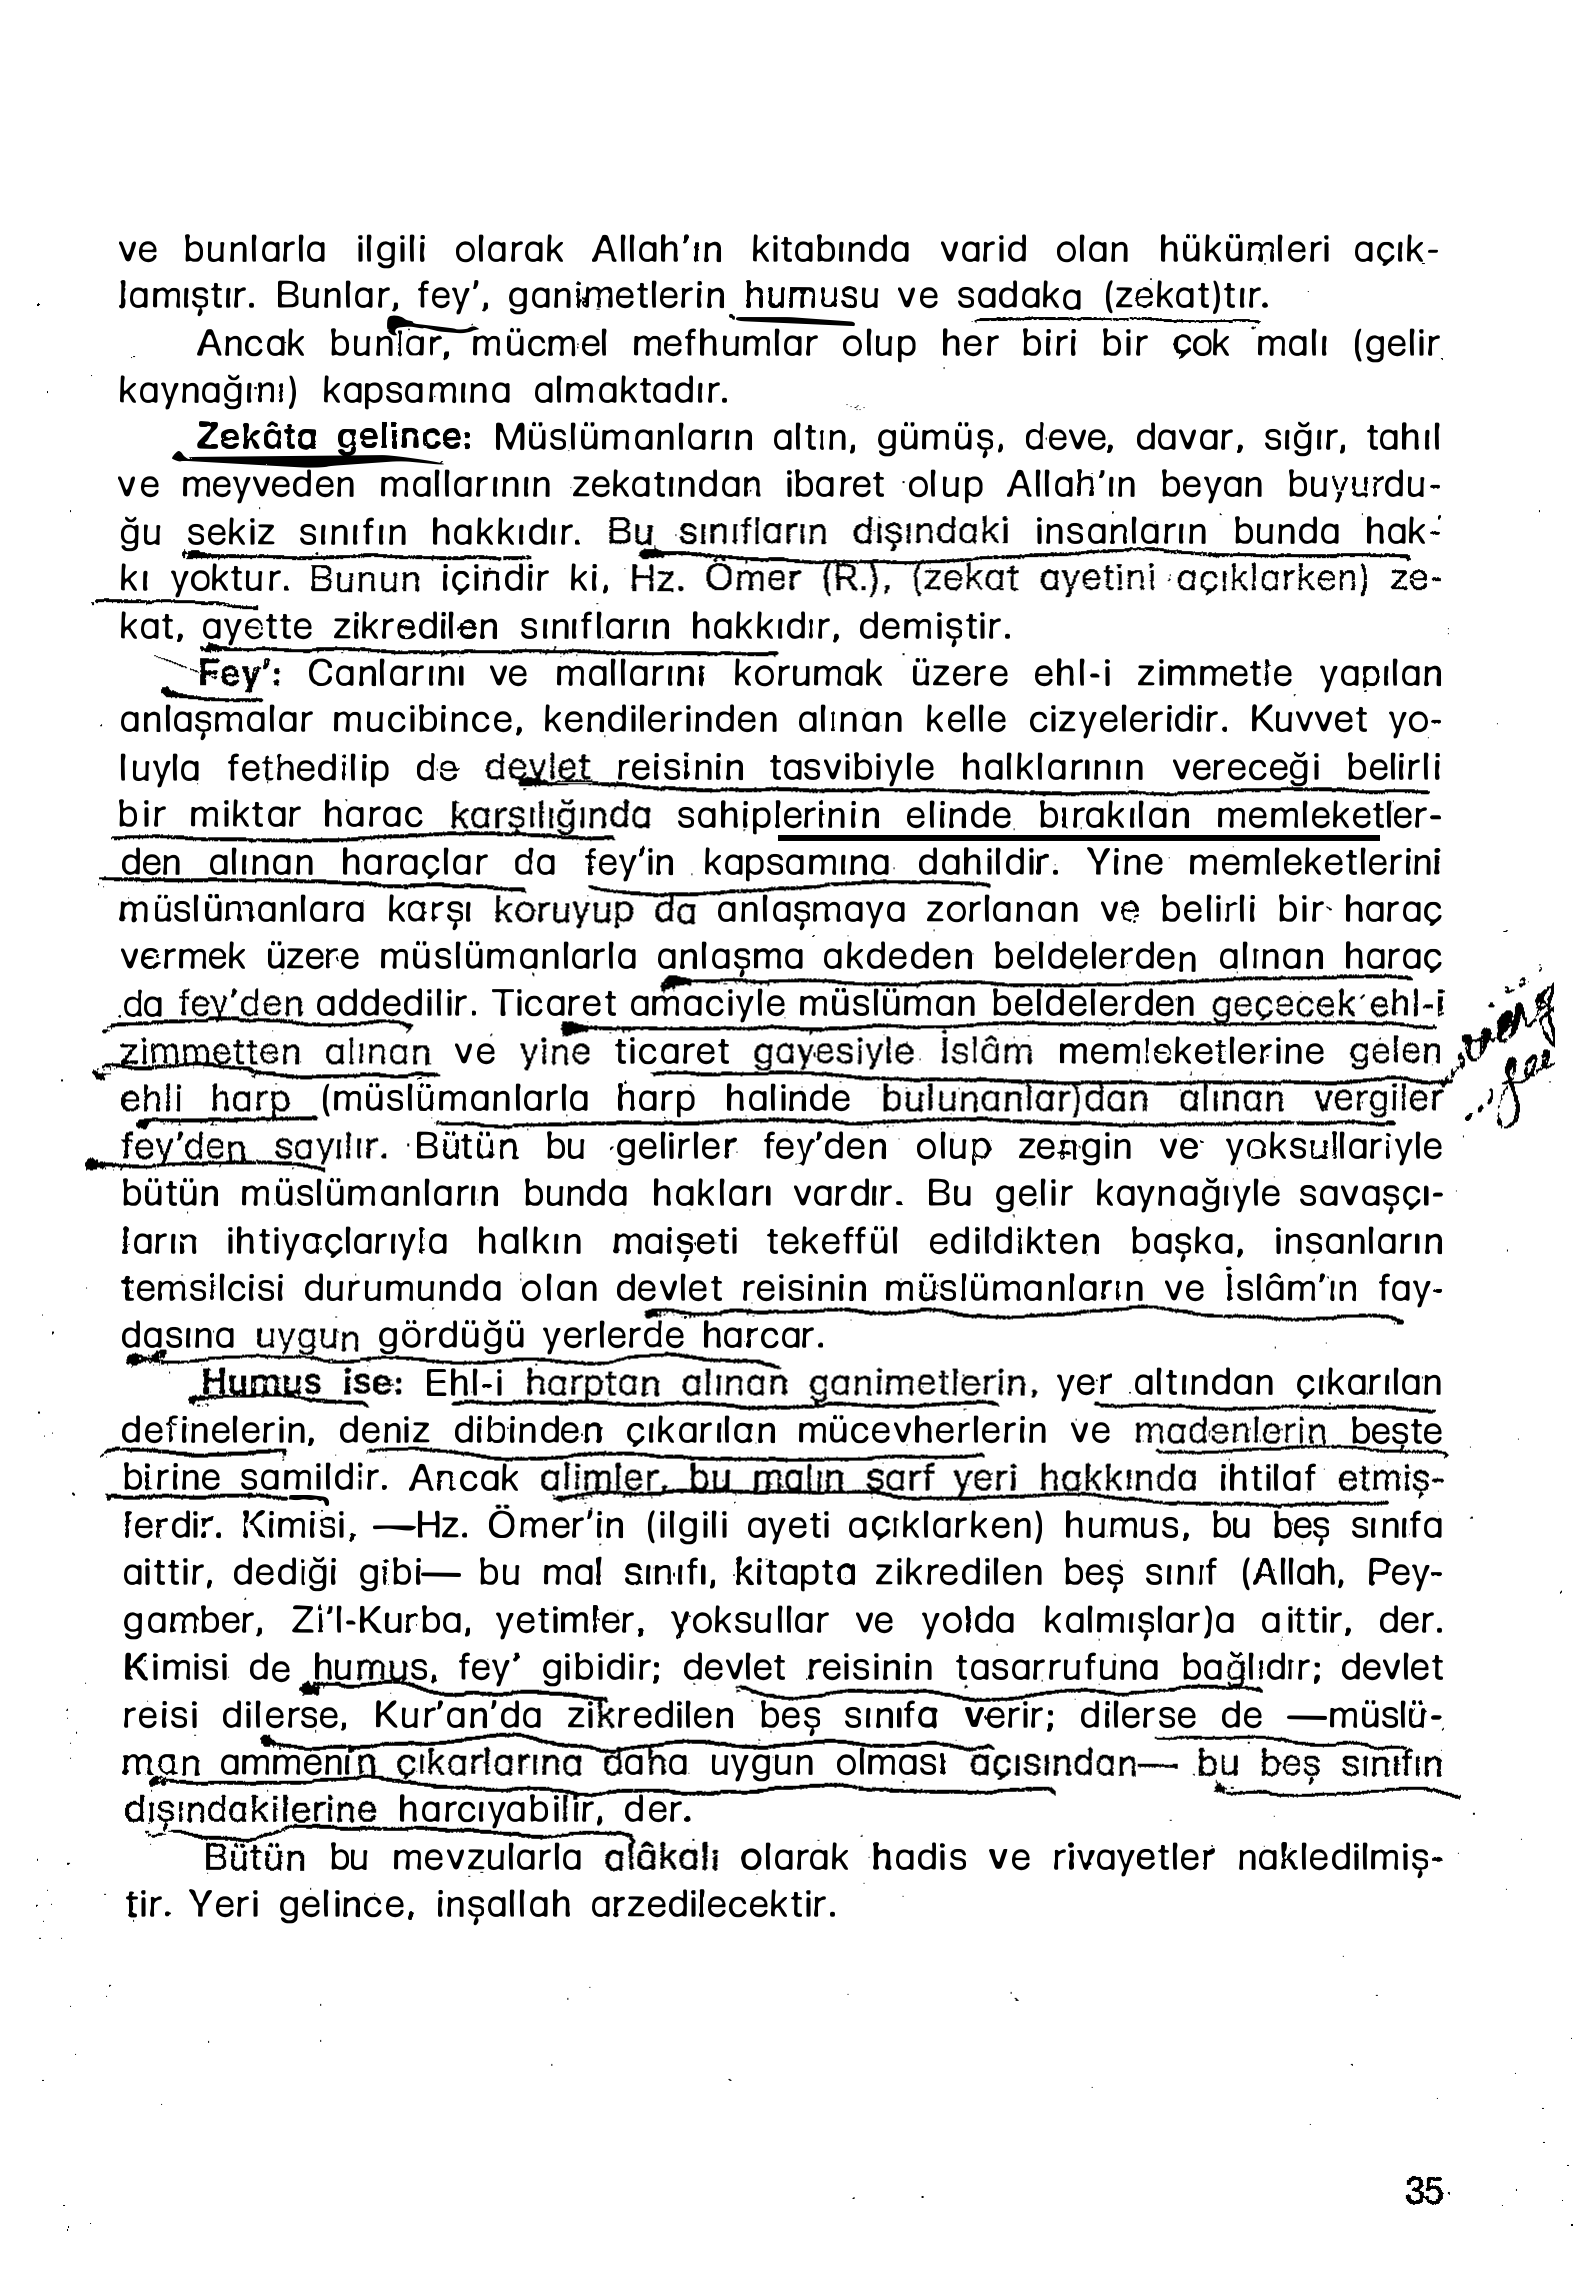 ve bunlarla ilgili olarak Allah'ın kitabında varid olan hükümleri açık-
lamıştır. Bunlar, fey', ganimetlerin humusu ve sadaka (zekat)tır.
Ancak bunlar, mücmel mefhumlar olup her biri bir çok malı (gelir
kaynağını) kapsamına almaktadır.
Zekâta gelince: Müslümanların altın, gümüş, deve, davar, sığır, tahıl
ve meyveden mallarının zekatından ibaret olup Allah'ın beyan buyurdu-
ğu sekiz sınıfın hakkıdır. Bu sınıfların dışındaki insanların bunda hak-
kı yoktur. Bunun içindir ki, Hz. Ömer (R.), (zekat ayetini açıklarken) ze-
kat, ayette zikredilen sınıfların hakkıdır, demiştir.
Fey': Canlarını ve mallarını korumak üzere ehl-i zimmetle yapılan
anlaşmalar mucibince, kendilerinden alınan kelle cizyeleridir. Kuvvet yo-
luyla fethedilip de devlet reisinin tasvibiyle halklarının vereceği belirli
bir miktar harac karşılığında sahiplerinin elinde bırakılan memleketler-
den alınan haraçlar da fey'in kapsamına dahildir. Yine memleketlerini
müslümanlara karşı koruyup da anlaşmaya zorlanan ve belirli bir haraç
vermek üzere müslümanlarla anlaşma akdeden beldelerden alınan haraç
da fey'den addedilir. Ticaret amaciyle müslüman beldelerden geçecek ehl-i
zimmetten alınan ve yine ticaret gayesiyle İslâm memleketlerine gelen
ehli harp (müslümanlarla harp halinde bulunanlar)dan alınan vergiler
fey'den sayılır. Bütün bu gelirler fey'den olup zengin ve yoksullariyle
bütün müslümanların bunda hakları vardır. Bu gelir kaynağıyle savaşçı-
ların ihtiyaçlarıyla halkın maişeti tekeffül edildikten başka, insanların
temsilcisi durumunda olan devlet reisinin müslümanların ve İslâm'ın fay-
dasına uygun gördüğü yerlerde harcar.
Humus ise: Ehl-i harptan alınan ganimetlerin, yer altından çıkarılan
definelerin, deniz dibinden çıkarılan mücevherlerin ve madenlerin beşte
birine şamildir. Ancak alimler, bu malın sarf yeri hakkında ihtilaf etmiş-
lerdir. Kimisi, —Hz. Ömer'in (ilgili ayeti açıklarken) humus, bu beş sınıfa
aittir, dediği gibi— bu mal sınıfı, kitapta zikredilen beş sınıf (Allah, Pey-
gamber, Zi'l-Kurba, yetimler, yoksullar ve yolda kalmışlar)a aittir, der.
Kimisi de humus, fey' gibidir; devlet reisinin tasarrufuna bağlıdır; devlet
reisi dilerse, Kur'an'da zikredilen beş sınıfa verir; dilerse de —müslü-
man ammenin çıkarlarına daha uygun olması açısından— bu beş sınıfın
dışındakilerine harcıyabilir, der.
Bütün bu mevzularla alâkalı olarak hadis ve rivayetler nakledilmiş-
tir. Yeri gelince, inşallah arzedilecektir.
35